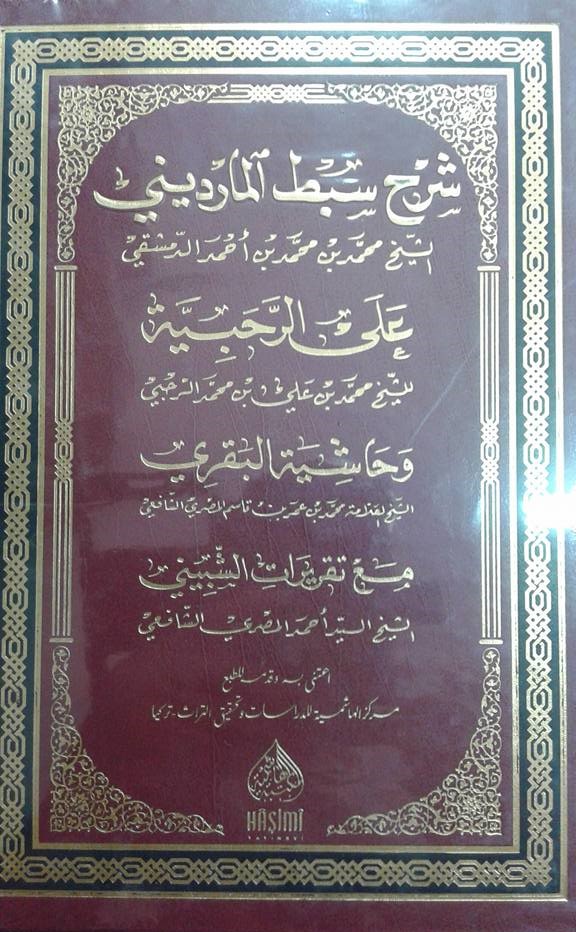 شرح سبط المارديني
الشيخ محمد بن محمد بن أحمد الدمشقي
على الرحبية
للشيخ محمد بن علي بن محمد الرحبي
وحاشية البقري
الشيخ العلامة محمد بن عمر بن قاسم المصري الشافعي
مع تقريرات الشبيني
الشيخ السيد أحمد المصري الشافعي
اعتنى به وقدمه للطبع
مركز الهاشمية للدراسات وتحقيق التراث - تركيا
HÂŞİMÎ
YAYINEVİ